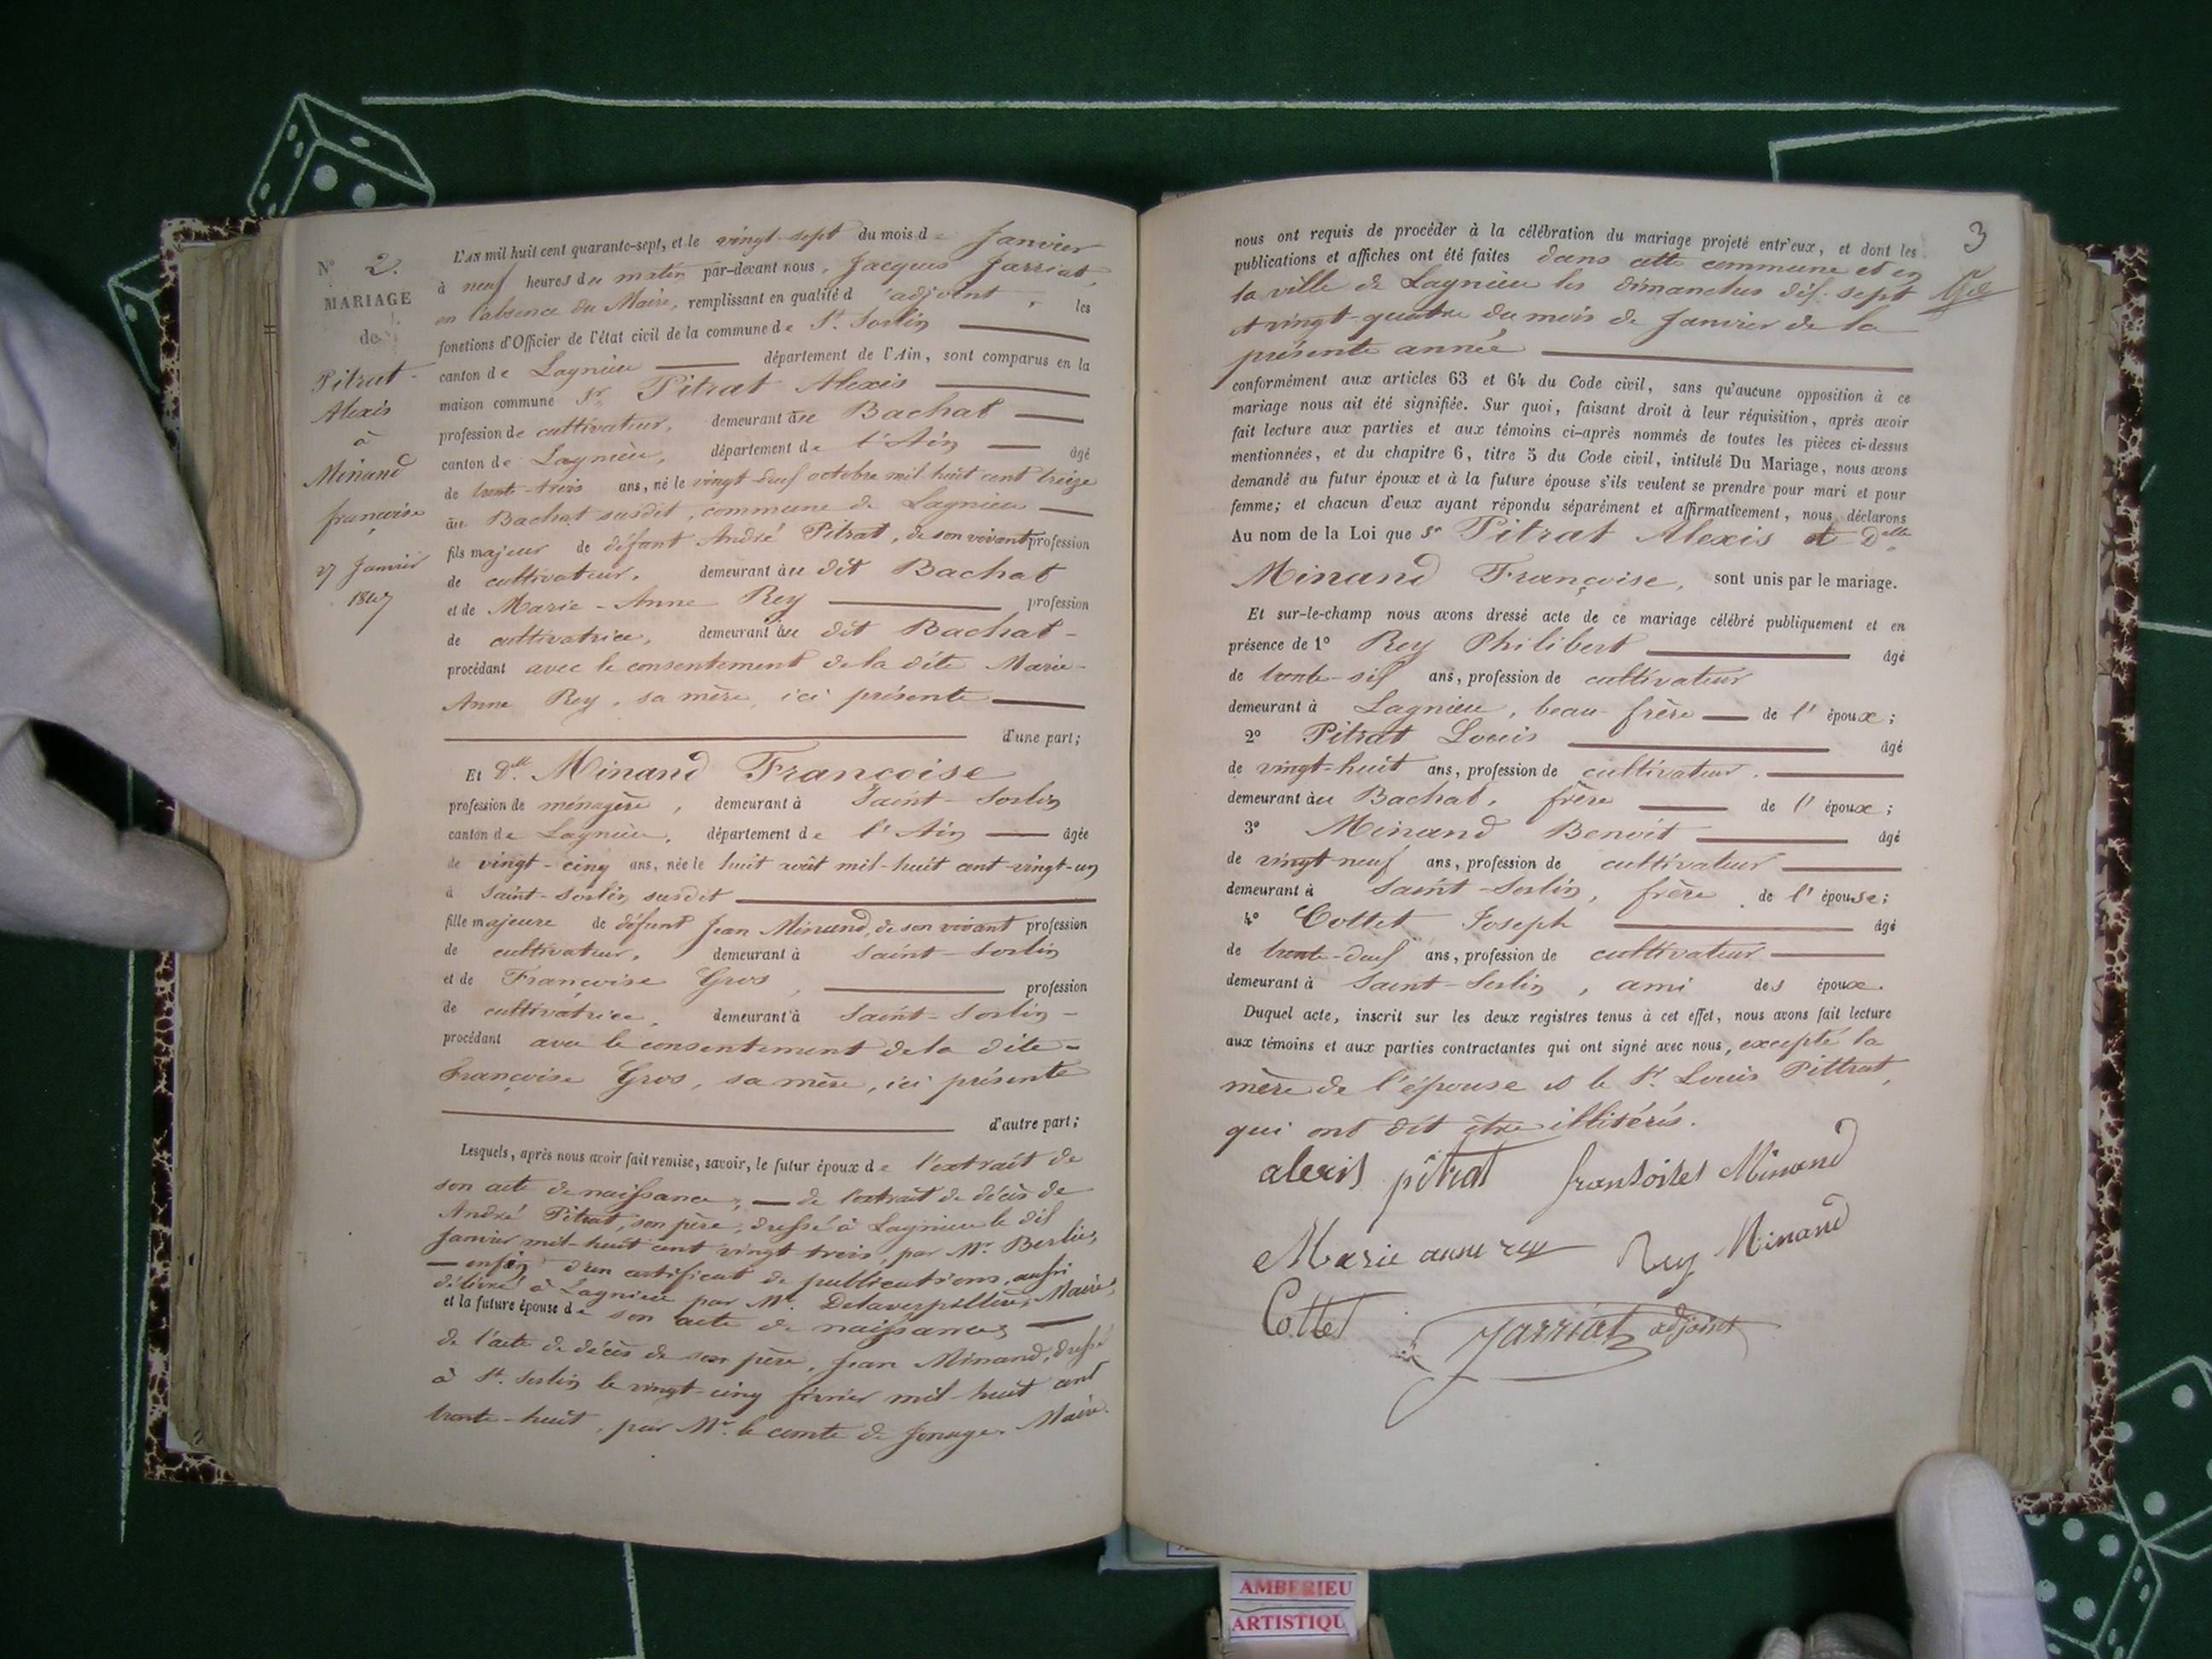 N.º 2.
MARIAGE
de
Pitrat
Alexis
à
Minand
françoise
27 Janvier
1847
L'AN mil huit cent quarante-sept, et le vingt-sept du mois de Janvier
à neuf heures du matin par-devant nous, Jacques Jarriat,
en l'absence du Maire, remplissant en qualité d'adjoint, les
fonctions d'Officier de l'état civil de la commune de St. Sorlin
canton de Lagnieu département de l'Ain, sont comparus en la
maison commune Sr. Pitrat Alexis
profession de cultivateur, demeurant au Bachat
canton de Lagnieu, département de l'Ain âgé
de trente-trois ans, né le vingt-deux octobre mil huit cent treize
au Bachat susdit, commune de Lagnieu
fils majeur de défunt André Pitrat, de son vivant profession
de cultivateur, demeurant au dit Bachat
et de Marie-Anne Rey profession
de cultivatrice, demeurant au dit Bachat
procédant avec le consentement de la dite Marie-
Anne Rey, sa mère, ici présente
d'une part;
Et Dlle. Minand Françoise
profession de ménagère, demeurant à Saint-Sorlin
canton de Lagnieu, département de l'Ain âgée
de vingt-cinq ans, née le huit août mil-huit cent-vingt-un
à Saint-Sorlin susdit
fille majeure de défunt Jean Minand, de son vivant profession
de cultivateur, demeurant à Saint-Sorlin
et de Françoise Gros, profession
de cultivatrice, demeurant à Saint-Sorlin
procédant avec le consentement de la dite
Françoise Gros, sa mère, ici présente
d'autre part;
Lesquels, après nous avoir fait remise, savoir, le futur époux de l'extrait de
son acte de naissance, de l'extrait de décès de
André Pitrat, son père, dressé à Lagnieu le dix
Janvier mil-huit cent vingt trois, par Mr. Berlie,
enfin d'un certificat de publications, aussi
délivré à Lagnieu par Mr. Delaverpillière, Maire,
et la future épouse de son acte de naissance,
de l'acte de décès de son père, Jean Minand, dressé
à St. Sorlin le vingt-cinq février mil-huit cent
trente-huit, par Mr. le comte de Jonage, Maire.
3
nous ont requis de procéder à la célébration du mariage projeté entr'eux, et dont les
publications et affiches ont été faites dans cette commune et en
la ville de Lagnieu les dimanches dix-sept
et vingt-quatre du mois de Janvier de la
présente année
conformément aux articles 63 et 64 du Code civil, sans qu'aucune opposition à ce
mariage nous ait été signifiée. Sur quoi, faisant droit à leur réquisition, après avoir
fait lecture aux parties et aux témoins ci-après nommés de toutes les pièces ci-dessus
mentionnées, et du chapitre 6, titre 5 du Code civil, intitulé Du Mariage, nous avons
demandé au futur époux et à la future épouse s'ils veulent se prendre pour mari et pour
femme; et chacun d'eux ayant répondu séparément et affirmativement, nous déclarons
Au nom de la Loi que Sr Pitrat Alexis et Delle
Minand Françoise, sont unis par le mariage.
Et sur-le-champ nous avons dressé acte de ce mariage célébré publiquement et en
présence de 1º Rey Philibert âgé
de trente-six ans, profession de cultivateur
demeurant à Lagnieu, beau-frère de l'époux;
2º Pitrat Louis âgé
de vingt-huit ans, profession de cultivateur.
demeurant au Bachat, frère de l'époux;
3º Minand Benoit âgé
de vingt-neuf ans, profession de cultivateur
demeurant à Saint-Sorlin, frère de l'épouse;
4º Cottet Joseph âgé
de trente-deux ans, profession de cultivateur
demeurant à Saint-Sorlin, ami des époux.
Duquel acte, inscrit sur les deux registres tenus à cet effet, nous avons fait lecture
aux témoins et aux parties contractantes qui ont signé avec nous, excepté la
mère de l'épouse et le Sr. Louis Pittrat,
qui ont dit être illitérés.
alexis pitrat fransoises Minand
Marie anne rey Rey Minand
Cottet Jarriat adjoint
AMBERIEU
ARTISTIQU